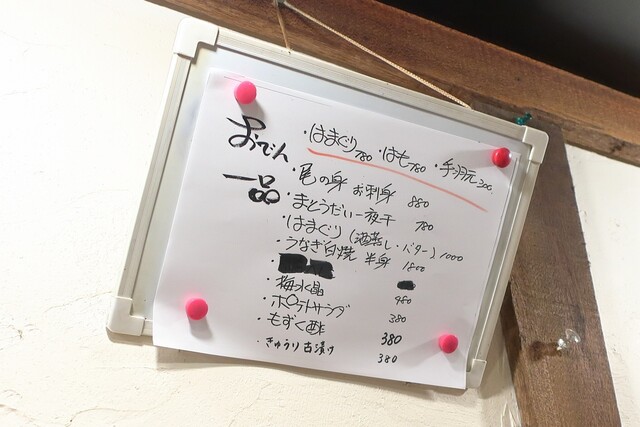 おでん ・はまぐり780 ・はも780 ・手羽元300
一品 ・尾の身 お刺身 880
・まとうだい一夜干 780
・はまぐり(酒蒸し・バター)1000
・うなぎ白焼 半身 1800
・梅水晶 480
・ポテトサラダ 380
・もずく酢 380
・きゅうり古漬け 380